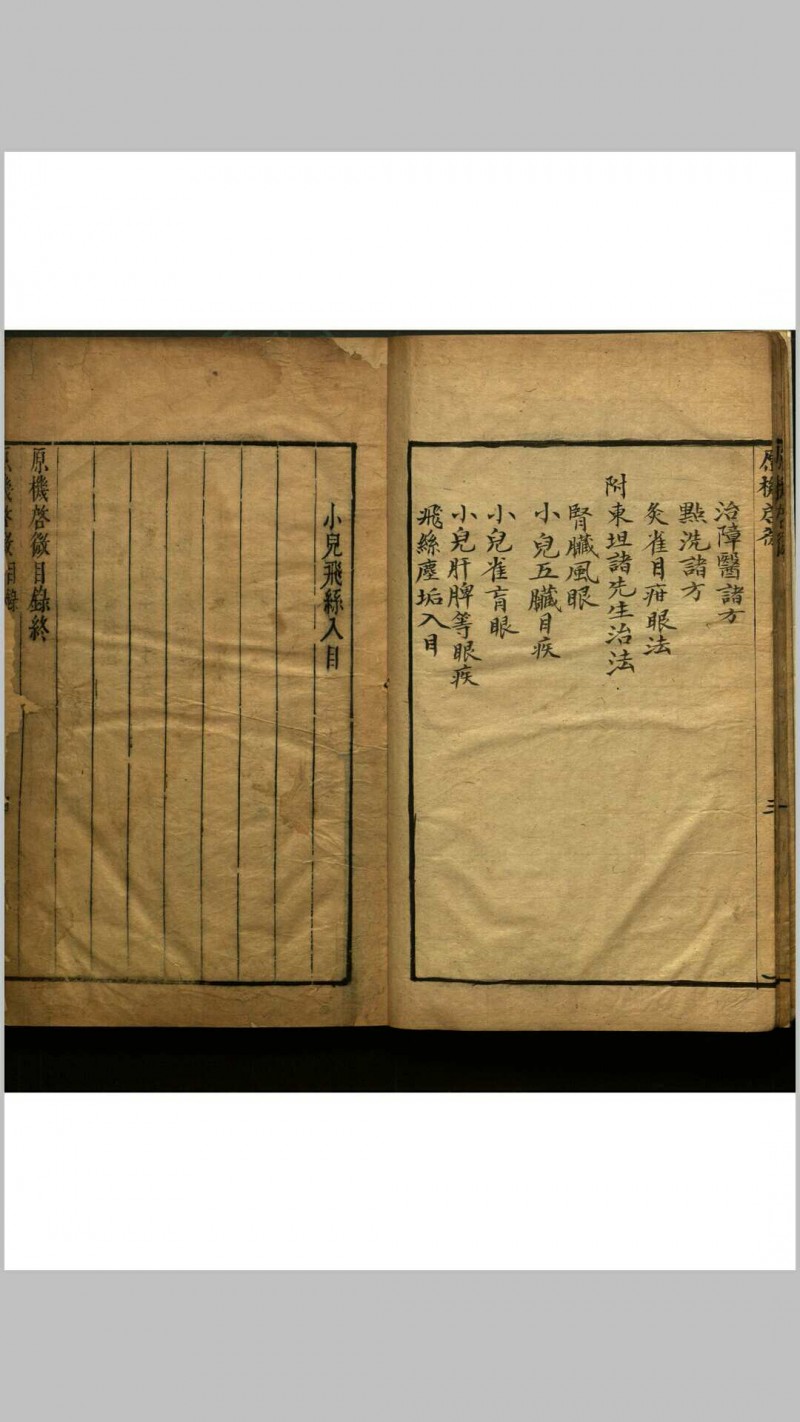 治障醫諸方
點洗諸方
灸雀目疳眼法
附東垣諸先生治法
腎臟風眼
小兒五臟目疾
小兒雀盲眼
小兒肝脾等眼疾
飛絲塵垢入目
小兒飛絲入目
原機啓微目錄終